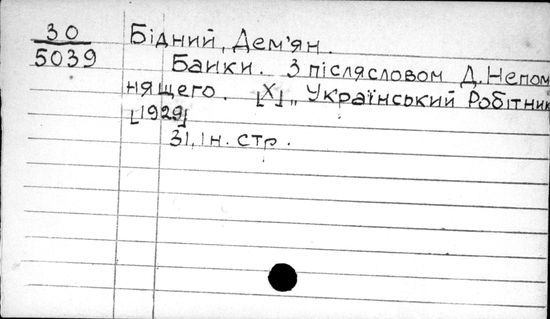 30
5039
Бідний, Дем'ян.
Байки. З післясловом Д. Непом
нящего. [X] „Український Робітник
[1929]
31, ін. стр.